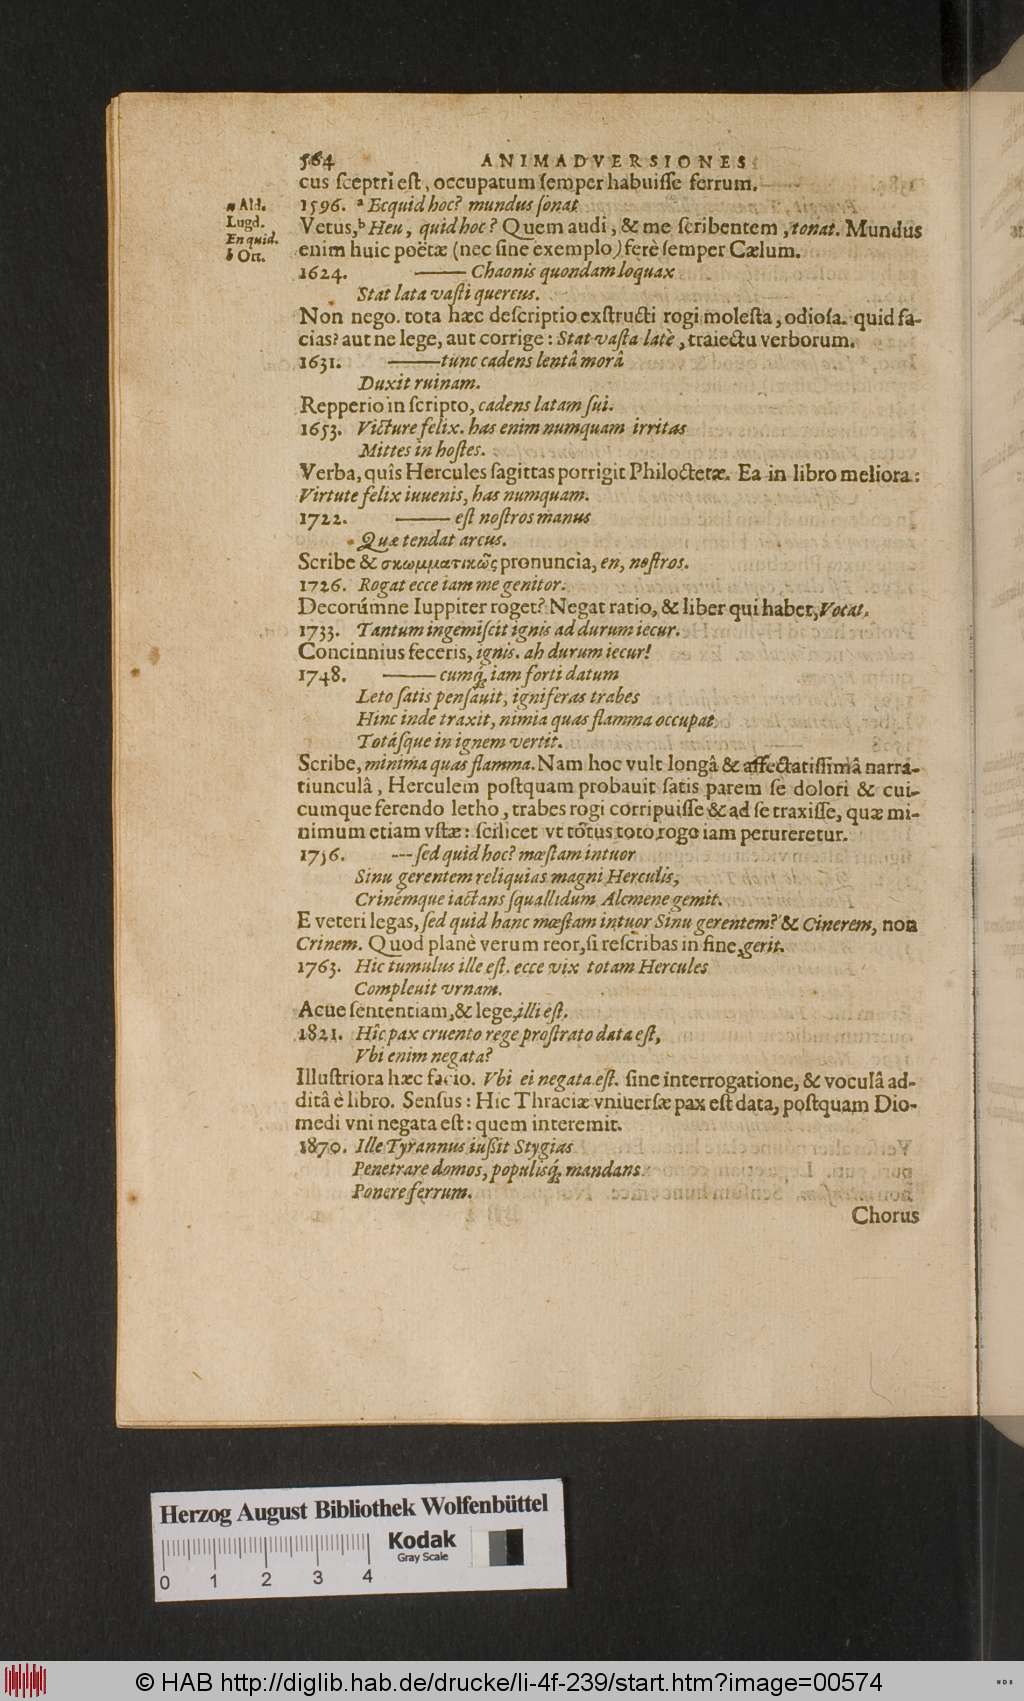 564 ANIMADVERSIONES
cus sceptri est, occupatum semper habuisse ferrum.
a Ald.
Lugd.
En quid.
b Ott.
1596. ᵃ Ecquid hoc? mundus sonat
Vetus,ᵇ Heu, quid hoc? Quem audi, & me scribentem, tonat. Mundus
enim huic poëtæ (nec sine exemplo) ferè semper Cælum.
1624. ——— Chaonis quondam loquax
Stat lata vasti quercus.
Non nego. tota hæc descriptio exstructi rogi molesta, odiosa. quid fa-
cias? aut ne lege, aut corrige: Stat vasta latè, traiectu verborum.
1631. ——— tunc cadens lentâ morâ
Duxit ruinam.
Repperio in scripto, cadens latam sui.
1653. Victure felix. has enim numquam irritas
Mittes in hostes.
Verba, quîs Hercules sagittas porrigit Philoctetæ. Ea in libro meliora:
Virtute felix iuuenis, has numquam.
1722. ——— est nostros manus
Quæ tendat arcus.
Scribe & σκωμματικῶς pronuncia, en, nostros.
1726. Rogat ecce iam me genitor.
Decorúmne Iuppiter roget? Negat ratio, & liber qui habet, Vocat.
1733. Tantum ingemiscit ignis ad durum iecur.
Concinnius feceris, ignis. ah durum iecur!
1748. ——— cumq́; iam forti datum
Leto satis pensauit, igniferas trabes
Hinc inde traxit, nimia quas flamma occupat
Totásque in ignem vertit.
Scribe, minima quas flamma. Nam hoc vult longâ & affectatissimâ narra-
tiunculâ, Herculem postquam probauit satis parem se dolori & cui-
cumque ferendo letho, trabes rogi corripuisse & ad se traxisse, quæ mi-
nimum etiam vstæ: scilicet vt totus toto rogo iam perureretur.
1756. --- sed quid hoc? mœstam intuor
Sinu gerentem reliquias magni Herculis,
Crinémque iactans squallidum Alcmene gemit.
E veteri legas, sed quid hanc mœstam intuor Sinu gerentem? & Cinerem, non
Crinem. Quod planè verum reor, si rescribas in fine, gerit.
1763. Hic tumulus ille est. ecce vix totam Hercules
Compleuit vrnam.
Acue sententiam, & lege, illi est.
1821. Hîc pax cruento rege prostrato data est,
Vbi enim negata?
Illustriora hæc facio. Vbi ei negata est. sine interrogatione, & voculâ ad-
ditâ è libro. Sensus: Hic Thraciæ vniuersæ pax est data, postquam Dio-
medi vni negata est: quem interemit.
1870. Ille Tyrannus iußit Stygias
Penetrare domos, populisq́; mandans
Ponere ferrum.
Chorus
Herzog August Bibliothek Wolfenbüttel
Kodak
Gray Scale
0 1 2 3 4
© HAB http://diglib.hab.de/drucke/li-4f-239/start.htm?image=00574